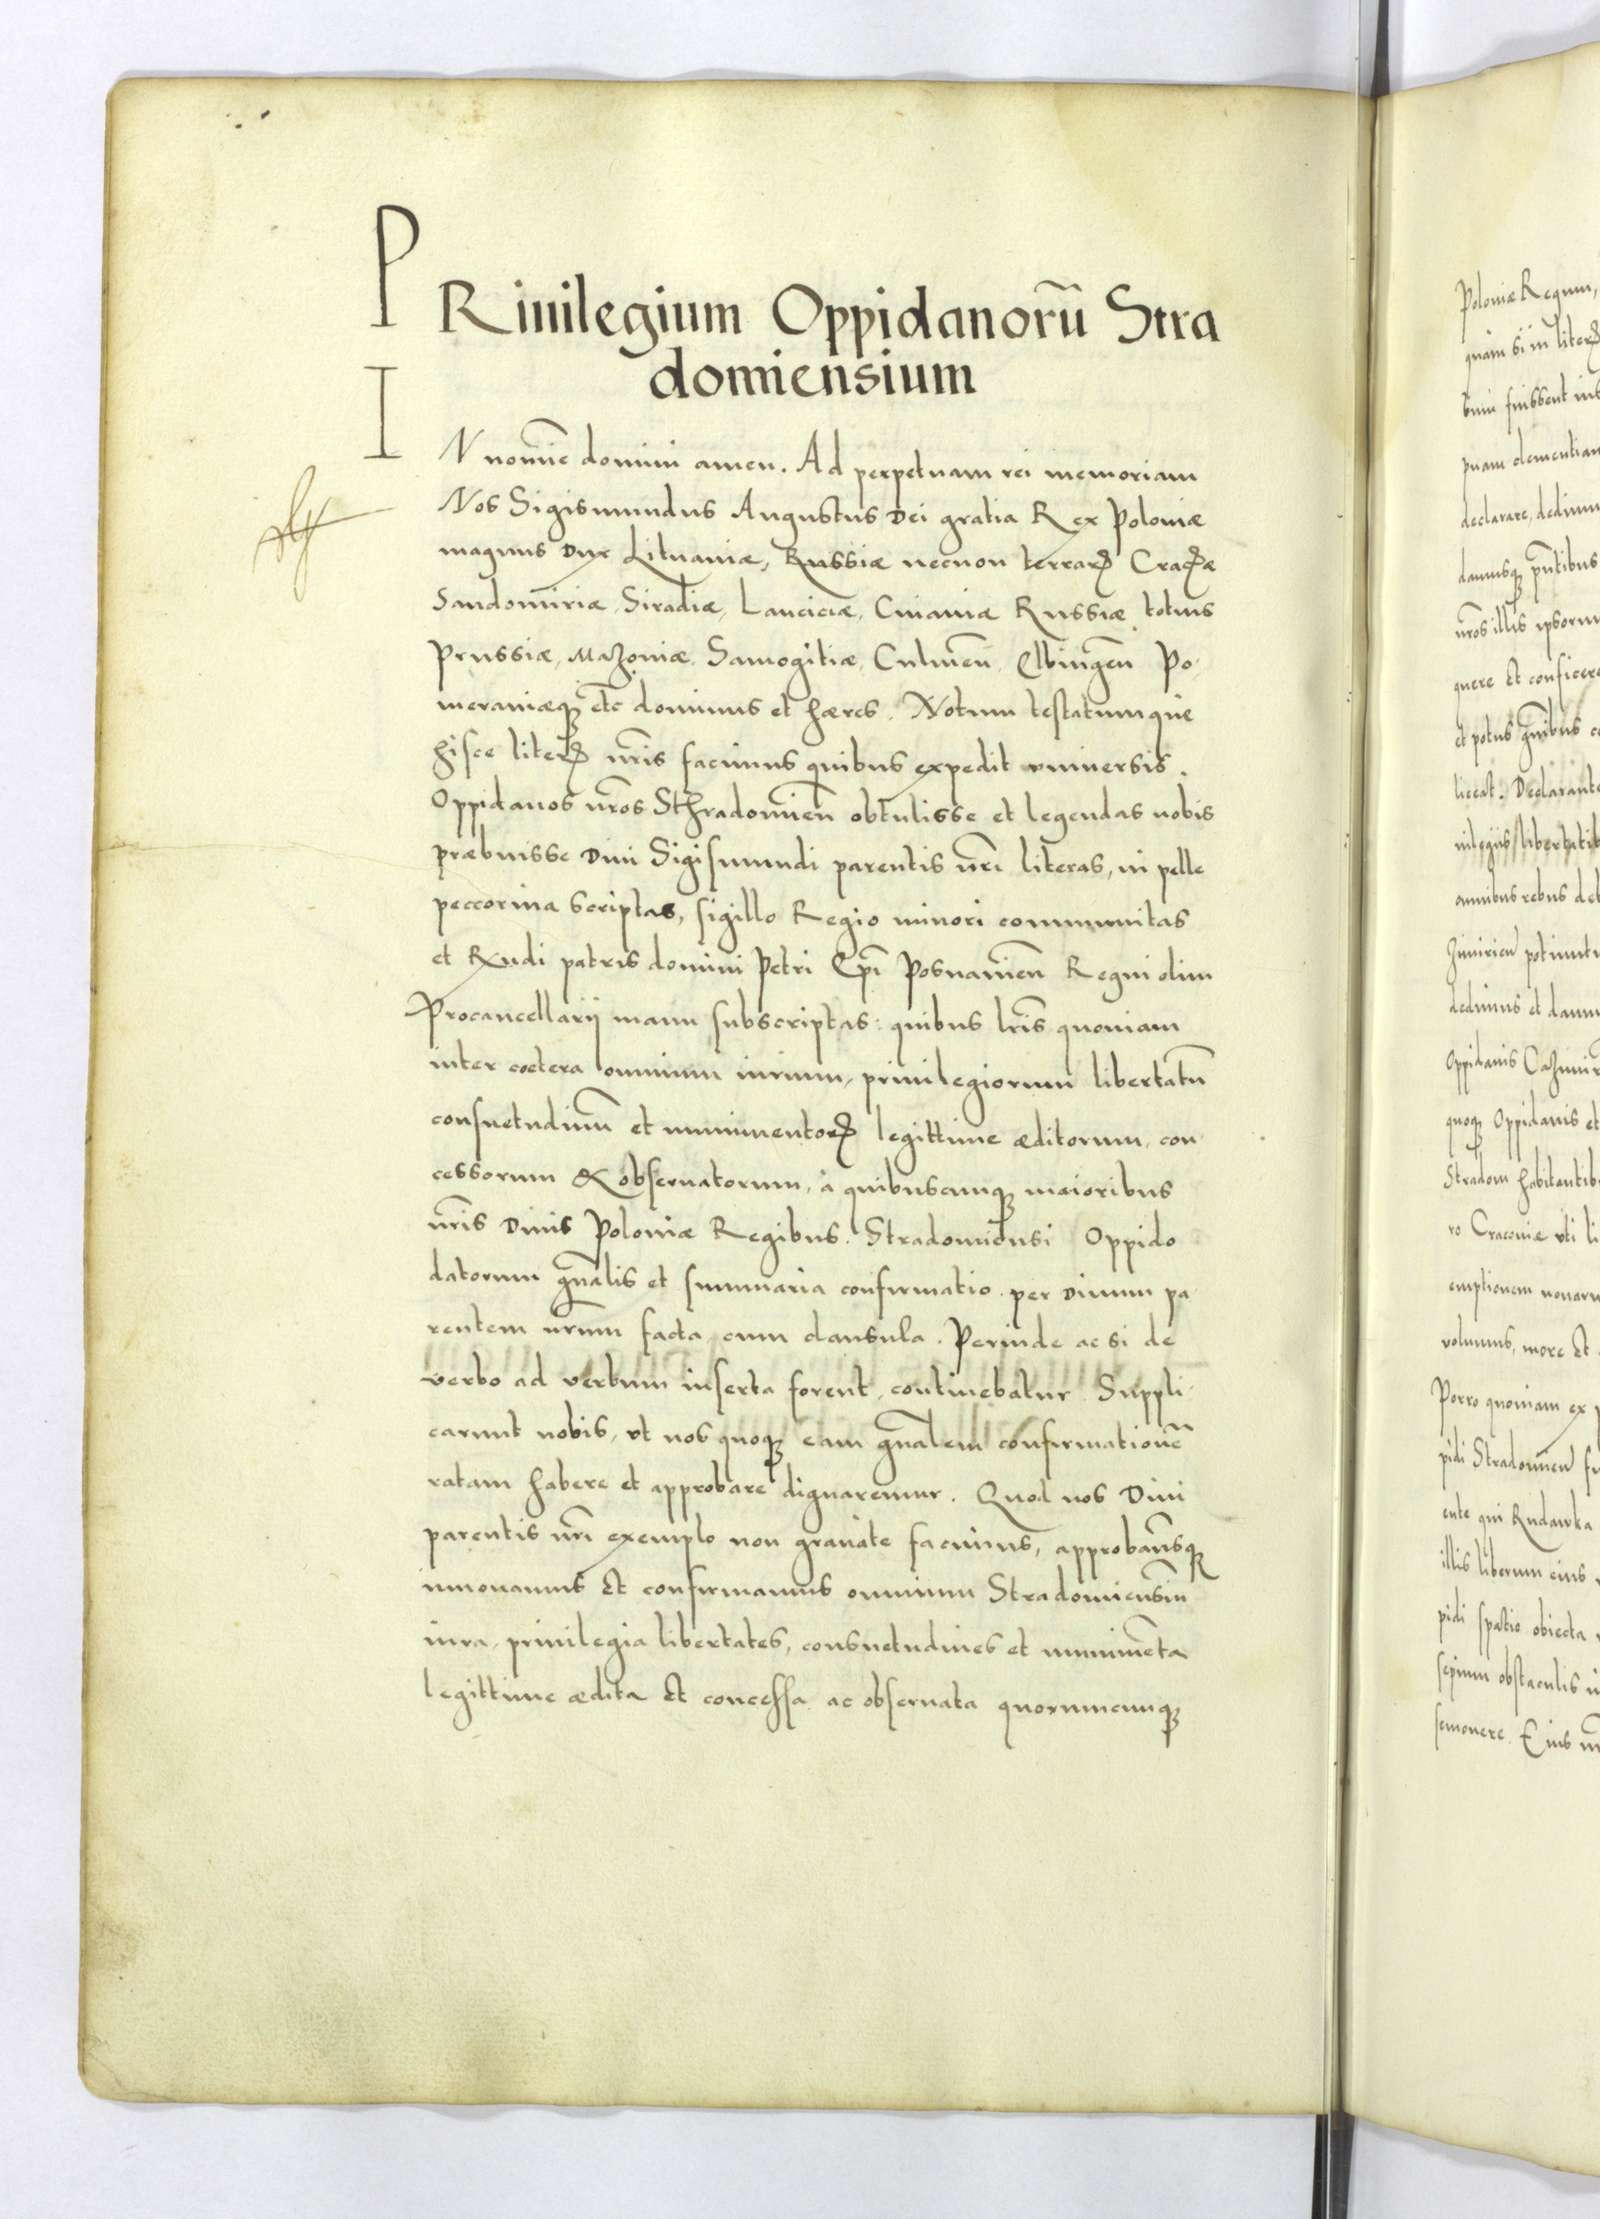 PRiuilegium Oppidanorũ Stra
domiensium
IN nomĩe domini amen. Ad perpetuam rei memoriam
Nos Sigismundus Augustus Dei gratia Rex Poloniæ
magnus Dux Lituaniæ, Russiæ necnon terrarꝝ Cracꝝæ
Sandomiriæ, Siradiæ, Lanciciæ, Cuiauiæ Russiæ totius
Prussiæ, Mazouiæ, Samogitiæ, Culmeñ, Elbingeñ Po-
meraniæqꝫ etc̃ dominus et hæres. Notum testatumque
hisce literꝝ nr̃is facimus quibus expedit vniuersis.
Oppidanos nr̃os Sthradomieñ obtulisse et legendas nobis
præbuisse Diui Sigismundi parentis nr̃i literas, in pelle
peccorina scriptas, sigillo Regio minori communitas
et Rx̃ndi patris domini Petri Ep̃i Posnanieñ Regni olim
Procancellarij manu subscriptas: quibus lr̃is quoniam
inter cœtera omnium iurium, priuilegiorum libertatũ
consuetudinũ et munimentorꝝ legittime æditorum, con-
cessorum & obseruatorum, à quibuscunqꝫ maioribus
nr̃is Diuis Poloniæ Regibus. Stradomiensi Oppido
datorum gñalis et summaria confirmatio per Diuum pa-
rentem nr̃um facta cum clausula. Perinde ac si de
verbo ad verbum inserta forent, continebatur. Suppli-
carunt nobis, vt nos quoqꝫ eam gñalem confirmationẽ
ratam habere et approbare dignaremur. Quod nos Diui
parentis nr̃i exemplo non grauate facimus, approbam̃sqꝫ
innouamus et confirmamus omnium Stradomiensiũ
iura, priuilegia libertates, consuetudines et munimẽta
legittime ædita et concessa ac obseruata quorumcunqꝫ
Poloniæ Regum,
quàm si in literꝝ
puam clementiam
declarare, dedimus
damusqꝫ pñtibus
nr̃os illis ipsorum
quere et conficere
et potus gñibus
liceat. Declarantes
uilegiis libertatib
omnibus rebus
potiuntur
dedimus et damus
Oppidanis
quoqꝫ Oppidanis et
Stradom habitantib
ro Cracouiæ vti li
emptionem
volumus, more et
Porro quoniam ex
pidi Stradomieñ
ente qui Rudawka
illis liberum eius
pidi spatio obiecta
sepium obstaculis
semouere. Eius